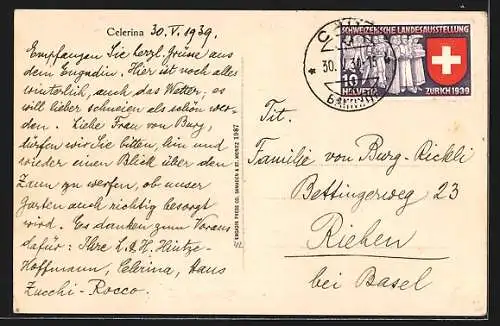 Celerina 30. V. 1939.
Empfangen Sie herzl. Grüsse aus
dem Engadin. Hier ist noch alles
winterlich, auch das Wetter, es
will lieber schneien als schön wer-
den. Liebe Frau von Burg,
dürfen wir Sie bitten, hin und
wieder einen Blick über den
Zaun zu werfen, ob unser
Garten auch richtig besorgt
wird. Es danken zum Voraus
dafür: Ihre L. & H. Hintze-
Hoffmann, Celerina, Haus
Zucchi-Rocco.
SCHWEIZERISCHE LANDESAUSSTELLUNG
10
HELVETIA ZÜRICH 1939
30.
Tit.
Familie von Burg-Rickli
Bettingerweg 23
Riehen
bei Basel